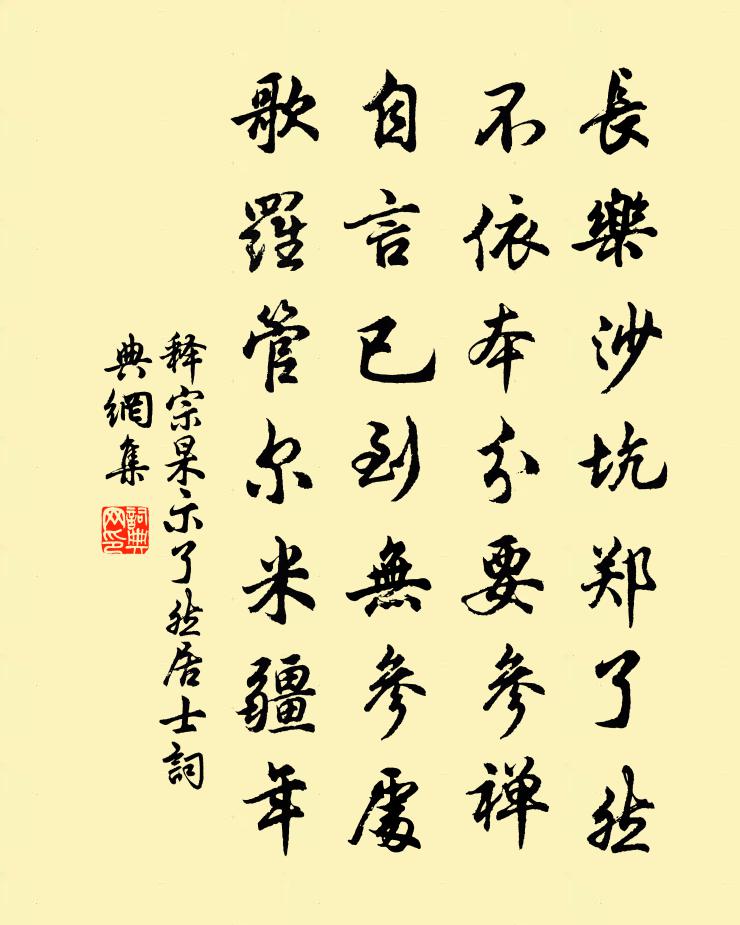 長樂沙坑郑了然
不依本分要參禅
自言已到無參處
歌羅管尔米疆年
释宗杲示了然居士詞
典網集
詞典网印